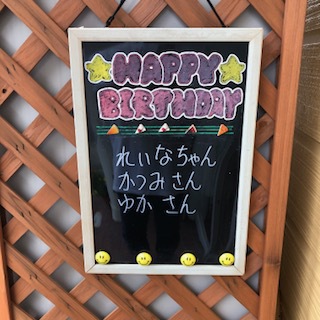 HAPPY
BIRTHDAY
れいなちゃん
かつみさん
ゆかさん